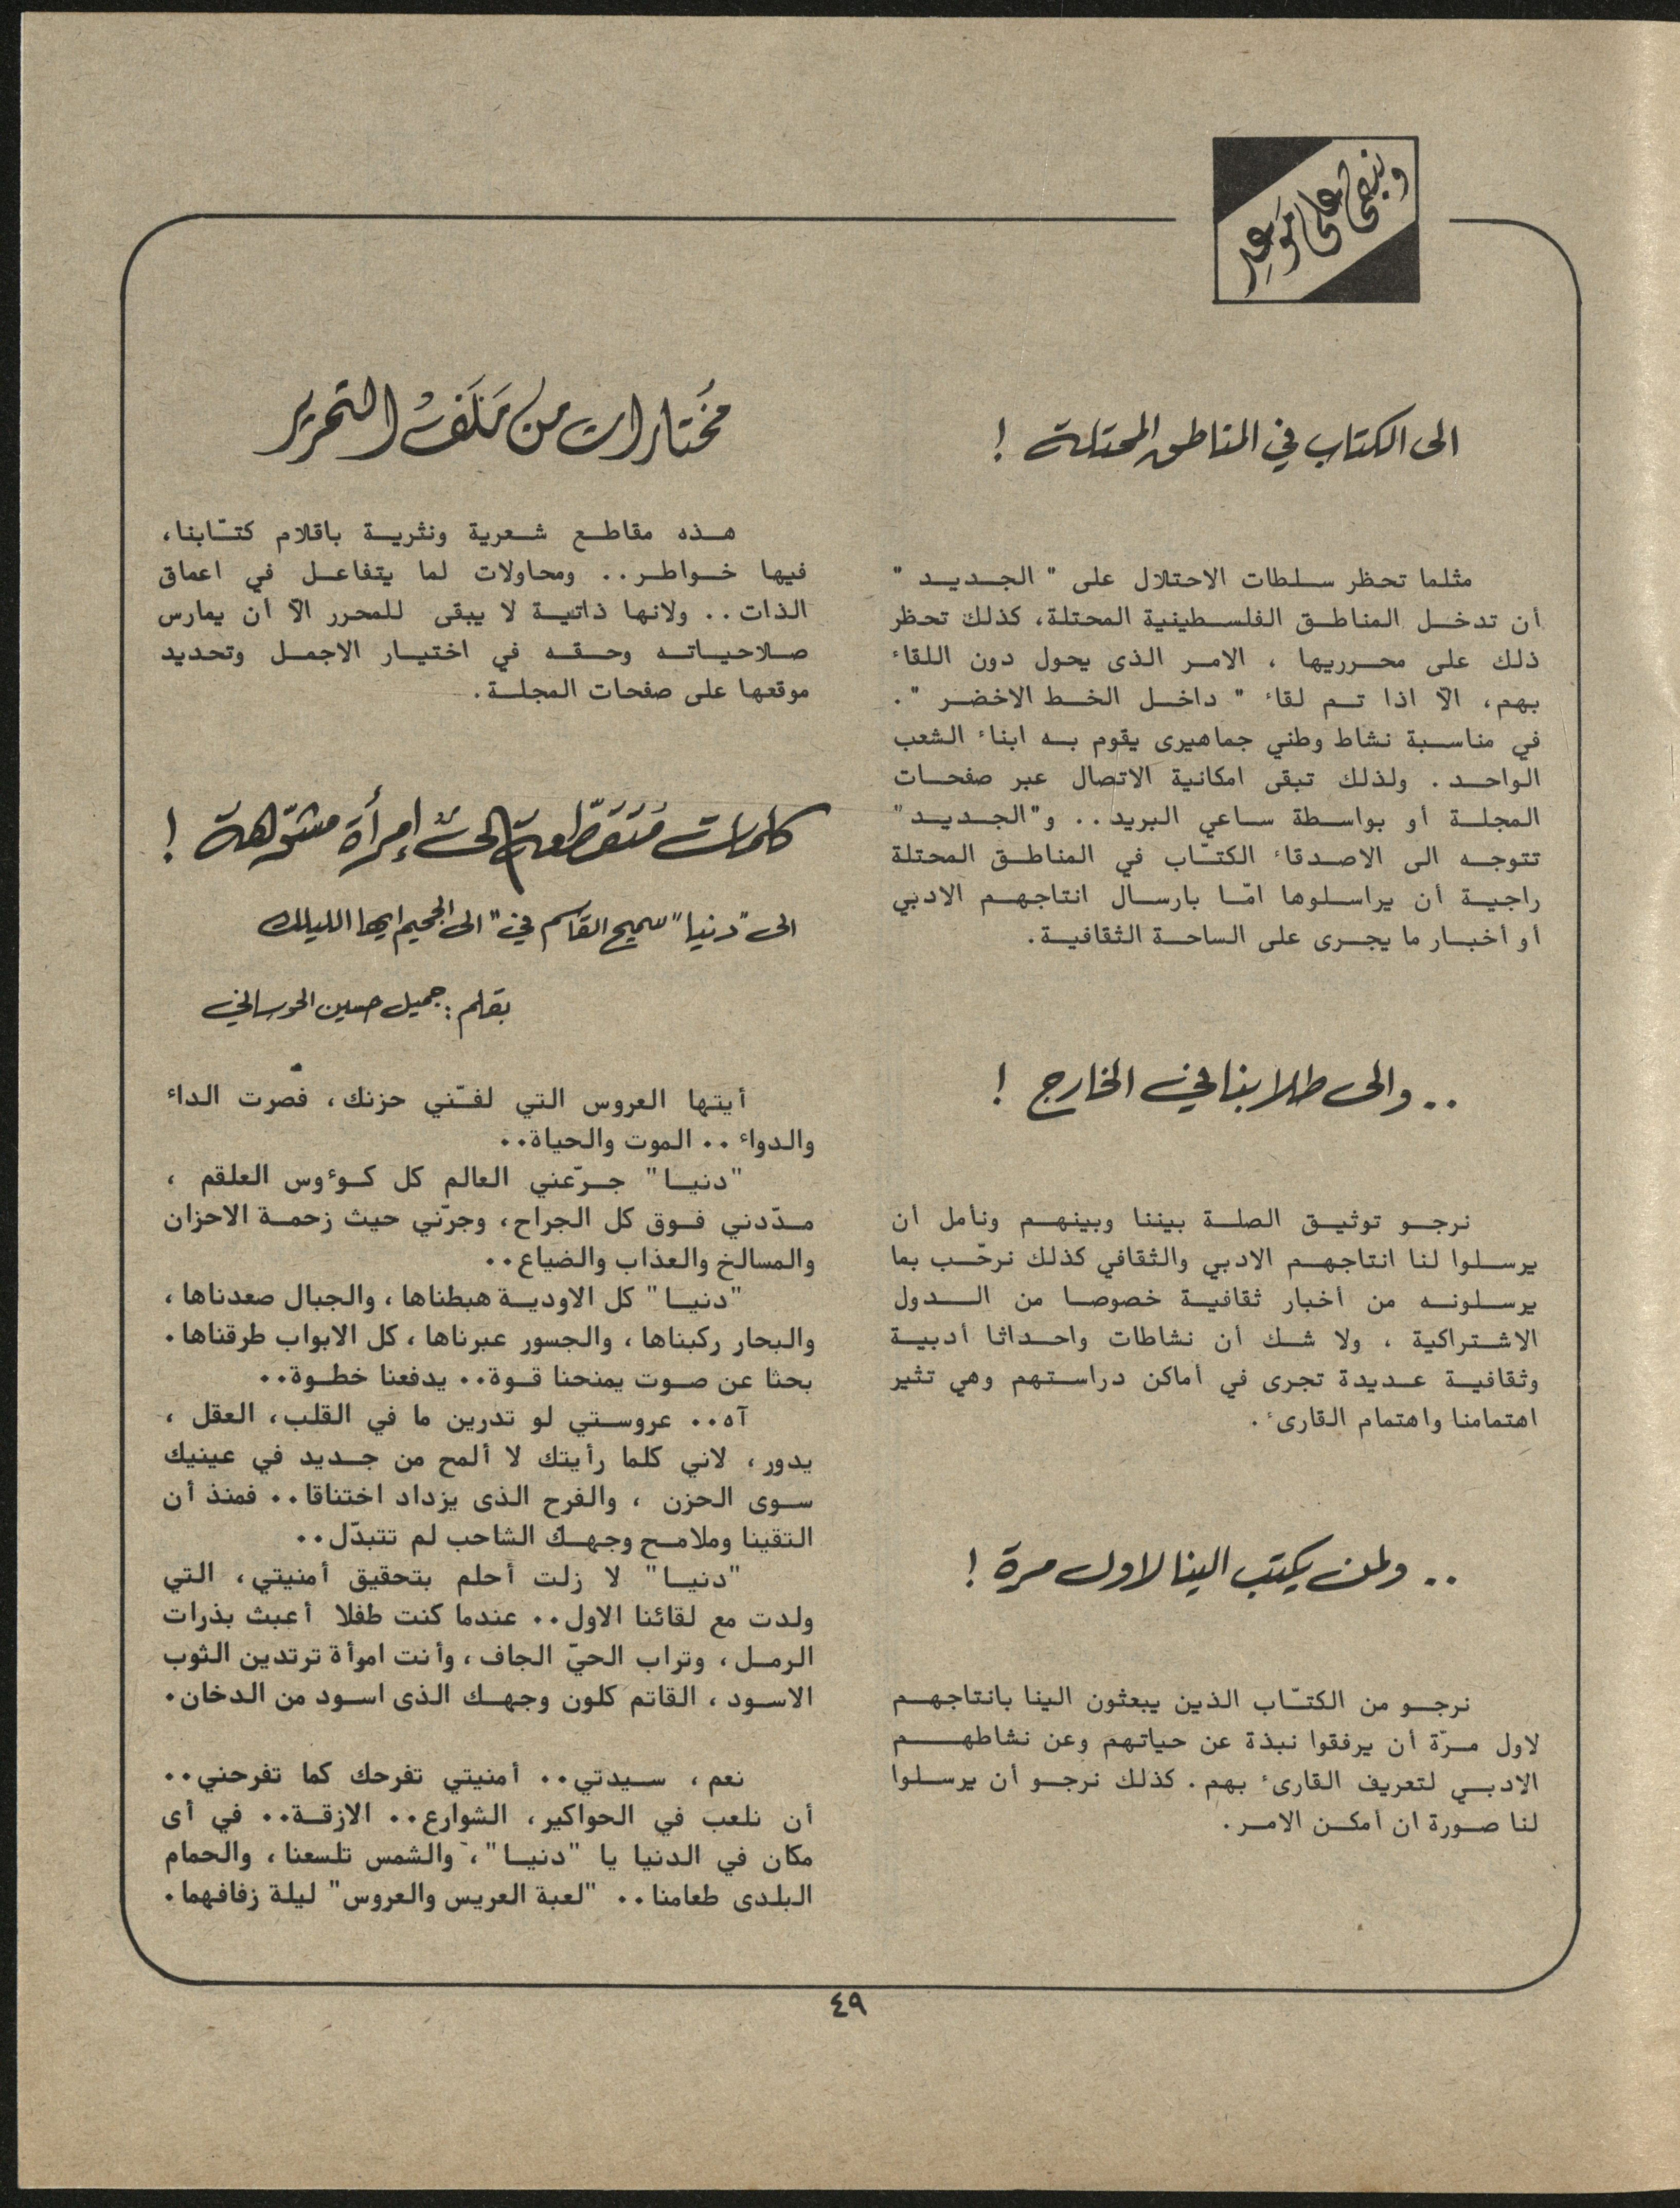 ونبقى على موعد
الى الكتاب في المناطق المحتلة !
مثلما تحظر سلطات الاحتلال على " الجديد "
أن تدخل المناطق الفلسطينية المحتلة، كذلك تحظر
ذلك على محرريها ، الامر الذى يحول دون اللقاء
بهم، الاّ اذا تم لقاء " داخل الخط الاخضر ".
في مناسبة نشاط وطني جماهيرى يقوم به ابناء الشعب
الواحد . ولذلك تبقى امكانية الاتصال عبر صفحات
المجلة أو بواسطة ساعي البريد.. و"الجديد"
تتوجه الى الاصدقاء الكتّاب في المناطق المحتلة
راجية أن يراسلوها امّا بارسال انتاجهم الادبي
أو أخبار ما يجرى على الساحة الثقافية.
.. والى طلابنا في الخارج !
نرجو توثيق الصلة بيننا وبينهم ونأمل أن
يرسلوا لنا انتاجهم الادبي والثقافي كذلك نرحّب بما
يرسلونه من أخبار ثقافية خصوصا من الدول
الاشتراكية ، ولا شك أن نشاطات واحداثا أدبية
وثقافية عديدة تجرى في أماكن دراستهم وهي تثير
اهتمامنا واهتمام القارىء .
.. ولمن يكتب الينا لاول مرة !
نرجو من الكتّاب الذين يبعثون الينا بانتاجهم
لاول مرّة أن يرفقوا نبذة عن حياتهم وعن نشاطهم
الادبي لتعريف القارىء بهم. كذلك نرجو أن يرسلوا
لنا صورة ان أمكن الامر.
مختارات من مَلَفّ التحرير
هذه مقاطع شعرية ونثرية باقلام كتّابنا،
فيها خواطر.. ومحاولات لما يتفاعل في اعماق
الذات.. ولانها ذاتية لا يبقى للمحرر الاّ أن يمارس
صلاحياته وحقه في اختيار الاجمل وتحديد
موقعها على صفحات المجلة.
كلمات مُتَقَطّعة إلى إمرأة مشوّهة !
الى "دنيا" سميح القاسم في "الى الجحيم ايها الليلك
بقلم : جميل حسين
أيتها العروس التي لفّني حزنك، فصرت الداء
والدواء .. الموت والحياة..
"دنيا" جرّعني العالم كل كوءوس العلقم ،
مدّدني فوق كل الجراح، وجرّني حيث زحمة الاحزان
والمسالخ والعذاب والضياع..
"دنيا" كل الاودية هبطناها ، والجبال صعدناها ،
والبحار ركبناها ، والجسور عبرناها ، كل الابواب طرقناها.
بحثا عن صوت يمنحنا قوة.. يدفعنا خطوة..
آه.. عروستي لو تدرين ما في القلب، العقل ،
يدور ، لاني كلما رأيتك لا ألمح من جديد في عينيك
سوى الحزن ، والفرح الذى يزداد اختناقا.. فمنذ أن
التقينا وملامح وجهك الشاحب لم تتبدّل..
"دنيا" لا زلت أحلم بتحقيق أمنيتي، التي
ولدت مع لقائنا الاول.. عندما كنت طفلا أعبث بذرات
الرمل ، وتراب الحيّ الجاف ، وأنت امرأة ترتدين الثوب
الاسود ، القاتم كلون وجهك الذى اسود من الدخان.
نعم ، سيدتي.. أمنيتي تفرحك كما تفرحني..
أن نلعب في الحواكير، الشوارع.. الازقة.. في أى
مكان في الدنيا يا "دنيا"، والشمس تلسعنا ، والحمام
البلدى طعامنا.. "لعبة العريس والعروس" ليلة زفافهما.
٤٩